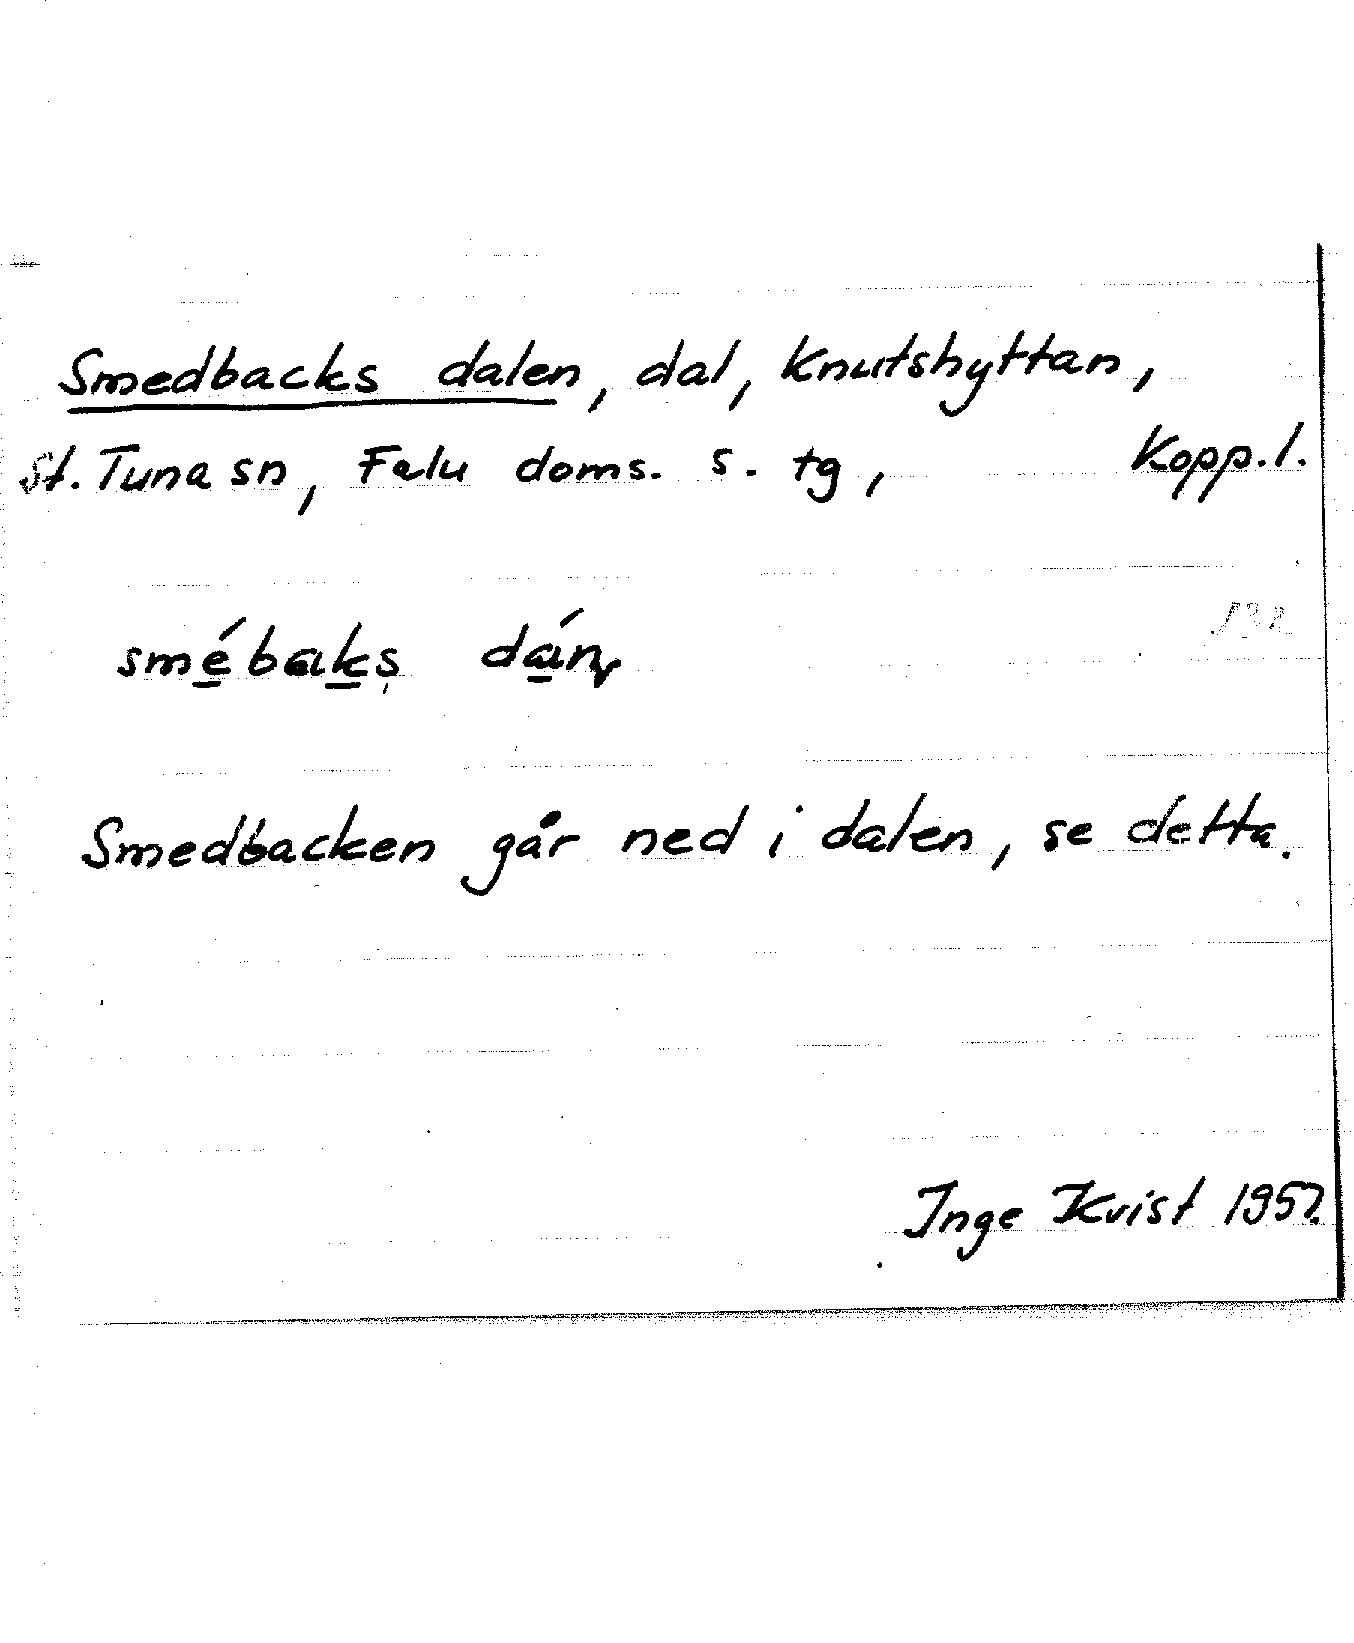 Smedbacks dalen, dal, Knutshyttan,
St. Tuna sn, Falu doms. s. tg, Kopp. l.
smébaks dán
Smedbacken går ned i dalen, se detta.
Inge Kvist 1957.